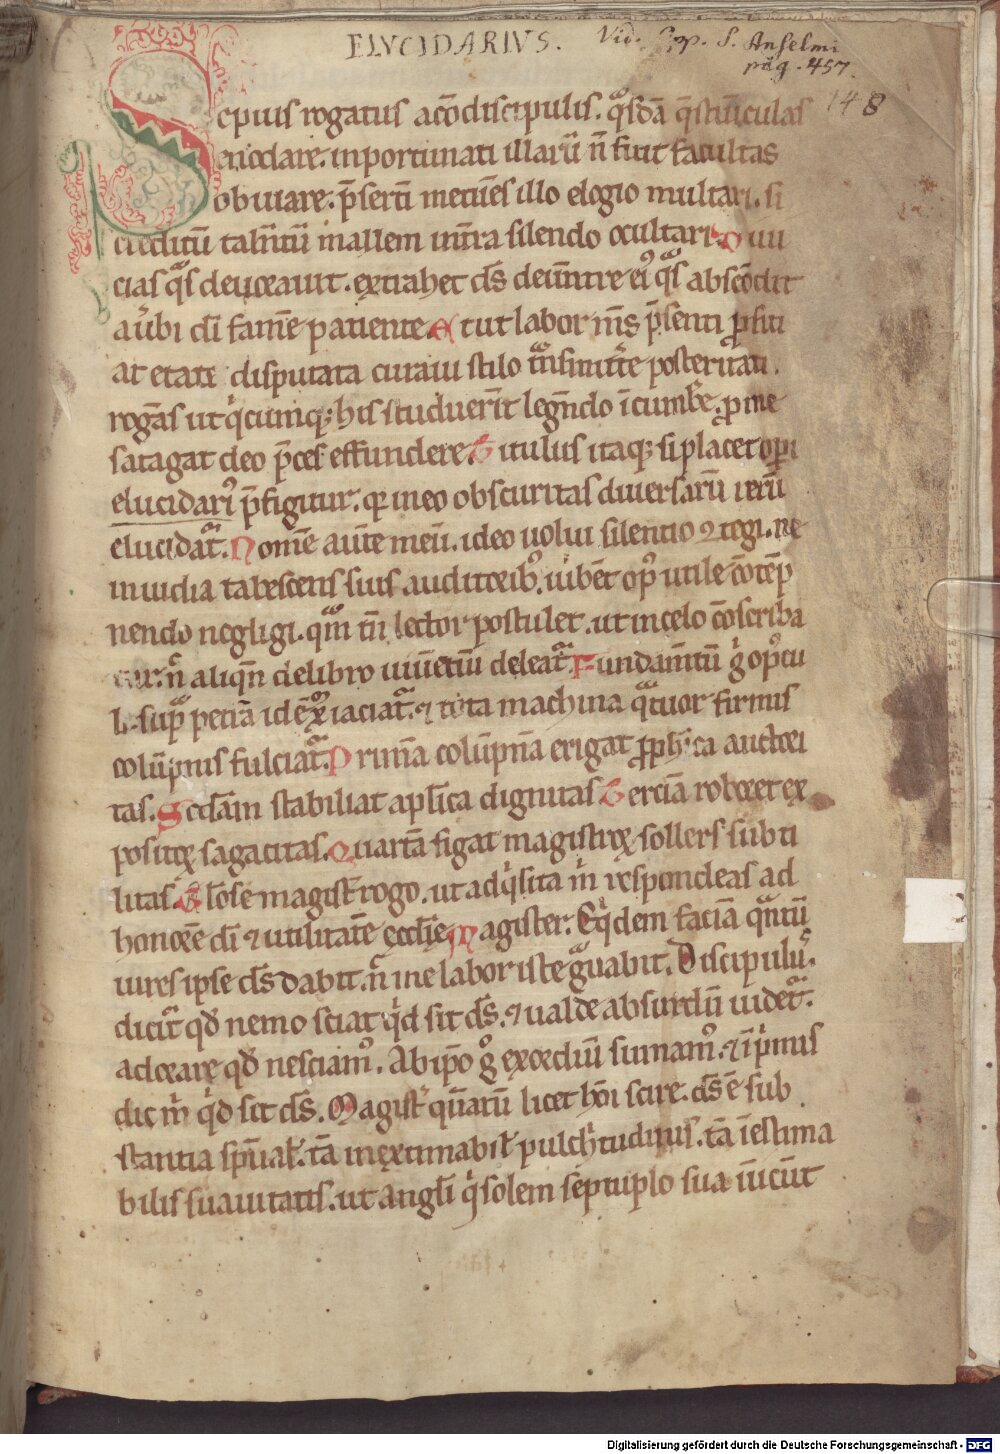 ELVCIDARIVS. Vid. Opp. S. Anselmi
pag. 457.
148
Sepius rogatus a cōdiscipulis. q̄sdā q̄stiūculas
enodare. inportunitati illarū n̄ fuit facultas
obuiare. p̄sertī metuēs illo elogio multari. si
creditū talētū mallem in trā silendo ocultari. Diui
cias q̄s deuorauit. extrahet ds̄ de uentre eiꝰ q̄s abscōdit
a uerbi dī famē patiente. Et ut labor m̄s p̄senti ꝓfici
at etate disputata curaui stilo trāsmittere posteritati.
rogās ut qͥcumqꝫ his studuerīt legēdo īcumbere. ꝓ me
satagat deo p̄ces effundere. Titulus itaqꝫ si placet opi
elucidariꝰ p̄figitur. qr in eo obscuritas diuersarū rerū
elucidat̄. Nomē autē meū. ideo uolui silentio ꝯtegi. ne
inuidia tabescens suis auditoribꝰ. iubēt opꝰ utile cōtēp
nendo negligi. q̄m tn̄ lector postulet. ut in celo cōscriba
tur. n̄ aliqn̄ de libro uiuētiū deleat̄. Fundam̄tū gͦ opꝰcu
li. sup̄ petrā id ē xp̄m iaciat̄. ⁊ tota machina q̄tuor firmis
colūpnis fulciat̄. Primā colūpnā erigat ꝓph̄ica auctori
tas. Scd̄am stabiliat aposticā dignitas. Terciā roboret ex
positorꝝ sagacitas. Quartā figat magistrorꝝ sollers subti
litas. Glōse magist̄ rogo. ut ad qͥsita m̄ respondeas ad
honorē dī ⁊ utilitatē eccl̄ie. Magister. Eqͥdem faciā qn̄tū
uires ipse ds̄ dabit. n̄ me labor iste grauabit. Discipulus.
dicit̄ qd̄ nemo sciat qͥd sit ds̄. ⁊ ualde absurdū uidet̄.
adorare qd̄ nesciamꝰ. Ab ip̄o gͦ exordiū sumamꝰ. ⁊ īpͥmis
dic m̄ qͥd sit ds̄. Magist̄ quātū licet hoī scire. ds̄ ē sub
stantia sp̄ualis. tā inextimabil̄ pulch̄tudinis. tā īestima
bilis suauitatis. ut angl̄i qͥ solem septuplo sua iūcūt
Digitalisierung gefördert durch die Deutsche Forschungsgemeinschaft - DFG